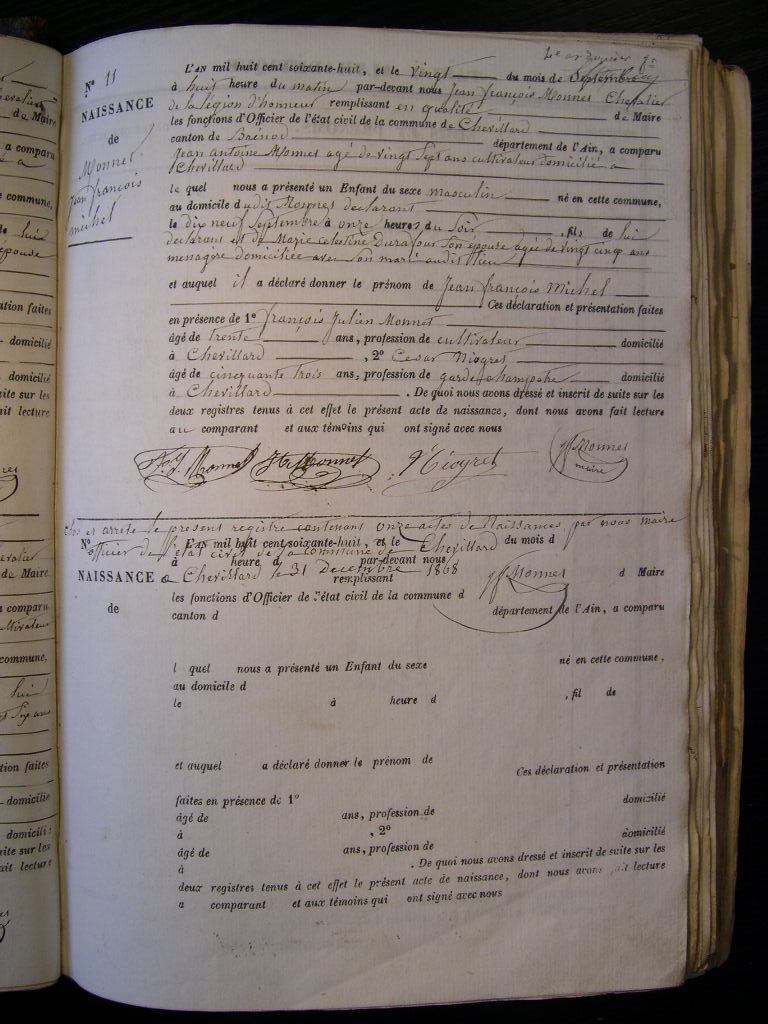 N° 11
NAISSANCE
de
Monnet
Jean françois
michel
L'AN mil huit cent soixante-huit, et le vingt du mois de Septembre
à huit heure du matin par-devant nous Jean françois Monnet Chevalier
de la légion d'honneur remplissant en qualité de Maire
les fonctions d'Officier de l'état civil de la commune de Chevillard
canton de Brénod département de l'Ain, a comparu
Jean Antoine Monnet agé de vingt Sept ans cultivateur domicilié a
Chevillard
le quel nous a présenté un Enfant du sexe masculin né en cette commune,
au domicile dudit Monnet declarant
le dix neuf Septembre à onze heures du Soir, fils de lui
declarant et de Marie celestine Durafour Son épouse agée de vingt cinq ans
menagère domiciliée avec Son mari audit lieu
et auquel il a déclaré donner le prénom de Jean françois Michel
Ces déclaration et présentation faites
en présence de 1° françois Julien Monnet
âgé de trente ans, profession de cultivateur domicilié
à Chevillard, 2° Cesar
âgé de cinquante trois ans, profession de garde champetre domicilié
à Chevillard. De quoi nous avons dressé et inscrit de suite sur les
deux registres tenus à cet effet le présent acte de naissance, dont nous avons fait lecture
au comparant et aux témoins qui ont signé avec nous
Monnet Monnet jf Monnet
maire
Clos et arreté le present registre contenant onze actes de Naissances, par nous maire
N° L'AN mil huit cent soixante-huit, et le du mois d
officier de l'état civil de la commune de Chevillard
à heure d par-devant nous
NAISSANCE a Chevillard le 31 decembre 1868 jf Monnet
remplissant d Maire
de
les fonctions d'Officier de l'état civil de la commune d
canton d département de l'Ain, a comparu
l quel nous a présenté un Enfant du sexe né en cette commune,
au domicile d
le à heure d, fil de
et auquel a déclaré donner le prénom de
Ces déclaration et présentation
faites en présence de 1° domicilié
âgé de ans, profession de
à, 2° domicilié
âgé de ans, profession de
à. De quoi nous avons dressé et inscrit de suite sur les
deux registres tenus à cet effet le présent acte de naissance, dont nous avons fait lecture
a comparant et aux témoins qui ont signé avec nous